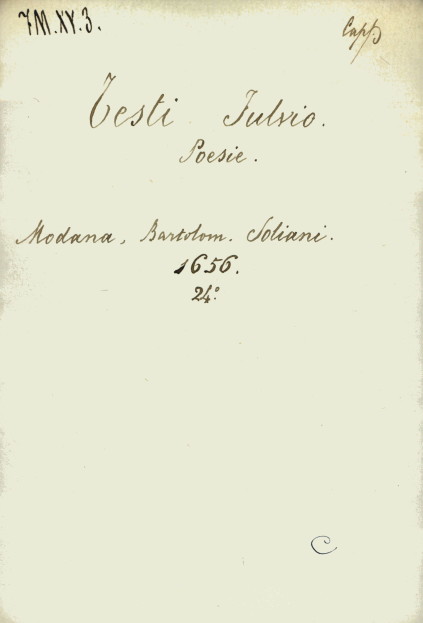 7M.XY.3.
Capp.
Testi Fulvio.
Poesie.
Modana, Bartolom. Soliani.
1656.
24°
C